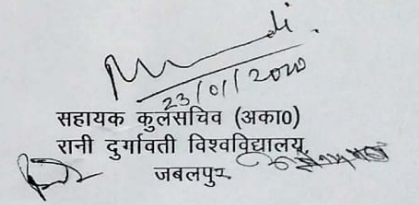 23/01/2020
सहायक कुलसचिव (अका0)
रानी दुर्गावती विश्वविद्यालय
जबलपुर